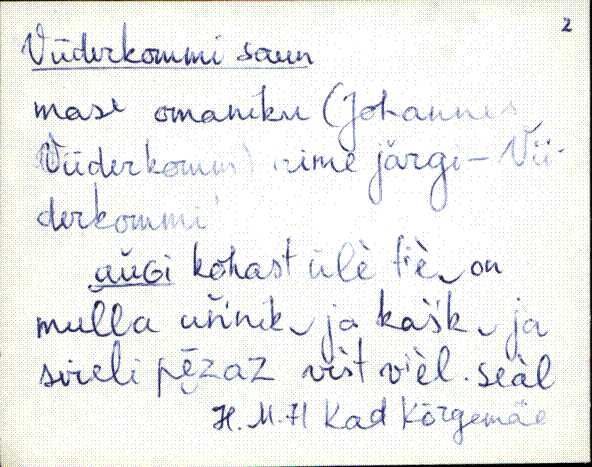 2
Viiderkommi saun
mase omaniku (Johannes
Viiderkomm) nime järgi - Vii-
derkommi
au̬G̬i kohast ülè tiè, on
mulla un'nik, ja kaśk, ja
sireli pēzaz vist vièl. seàl
H. M-Hl Kad Kõrgemäe